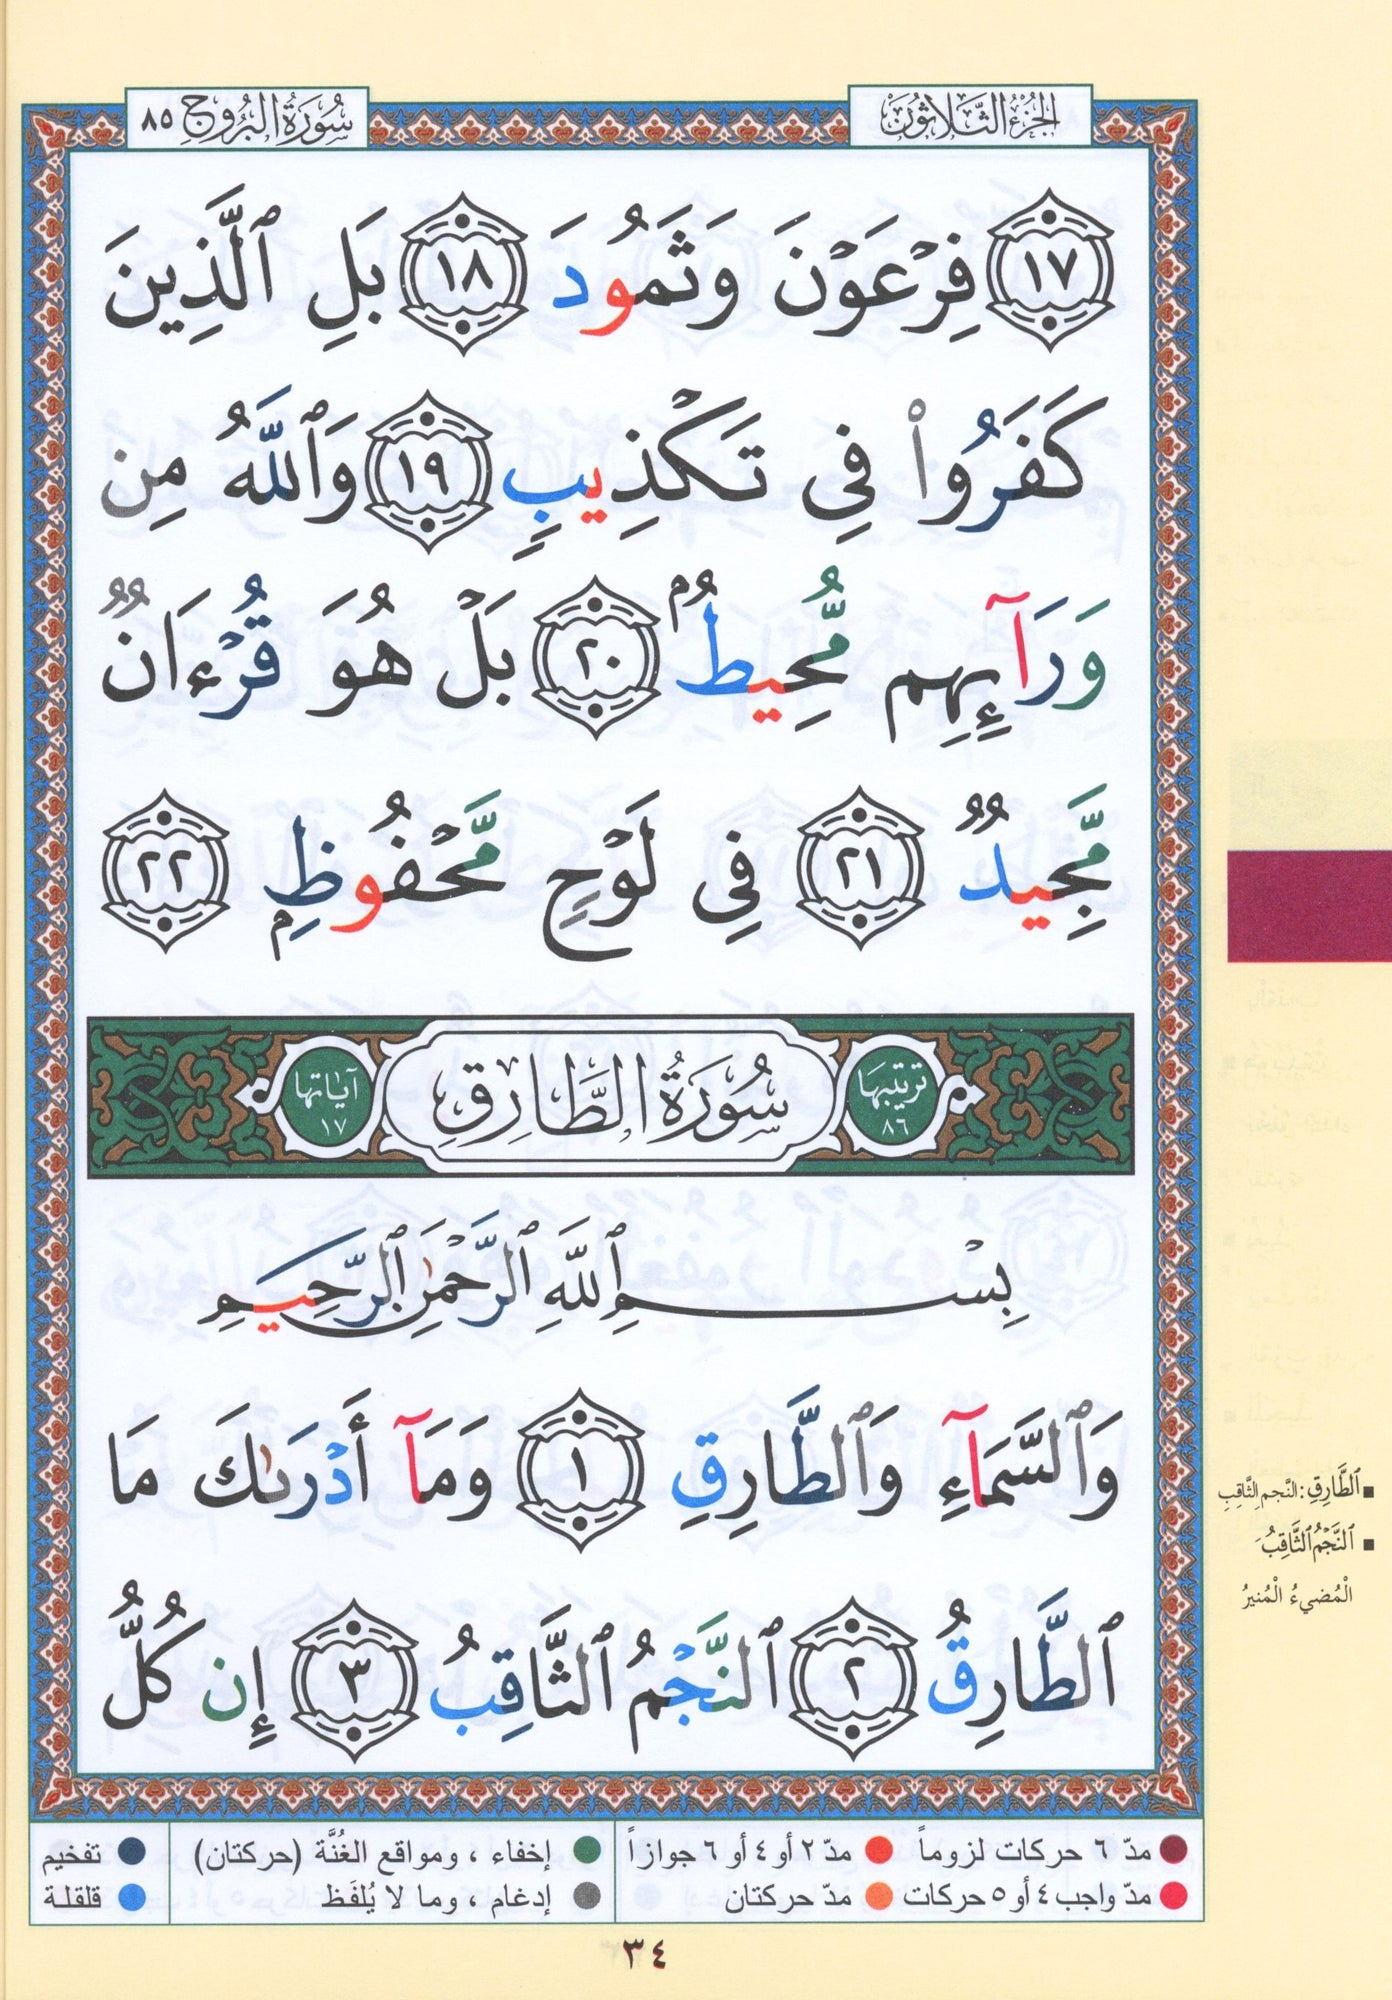 الجزء الثلاثون
سورة البروج ٨٥
١٧ فِرْعَوْنَ وَثَمُودَ ١٨ بَلِ ٱلَّذِينَ
كَفَرُوا۟ فِى تَكْذِيبٍ ١٩ وَٱللَّهُ مِن
وَرَآئِهِم مُّحِيطٌۢ ٢٠ بَلْ هُوَ قُرْءَانٌ
مَّجِيدٌ ٢١ فِى لَوْحٍ مَّحْفُوظٍۭ ٢٢
ترتيبها ٨٦ سُورَةُ الطَّارِقِ آياتها ١٧
بِسْمِ ٱللَّهِ ٱلرَّحْمَٰنِ ٱلرَّحِيمِ
وَٱلسَّمَآءِ وَٱلطَّارِقِ ١ وَمَآ أَدْرَىٰكَ مَا
ٱلطَّارِقُ ٢ ٱلنَّجْمُ ٱلثَّاقِبُ ٣ إِن كُلُّ
■ ٱلطَّارِقِ: النَّجم الثَّاقِبِ
■ ٱلنَّجْمُ ٱلثَّاقِبُ
الْمُضيءُ الْمُنيرُ
مدّ ٦ حركات لزوماً مدّ ٢ أو ٤ أو ٦ جوازاً إخفاء ، ومواقع الغُنَّة (حركتان) تفخيم
مدّ واجب ٤ أو ٥ حركات مدّ حركتان إدغام ، وما لا يُلفَظ قلقلة
٣٤